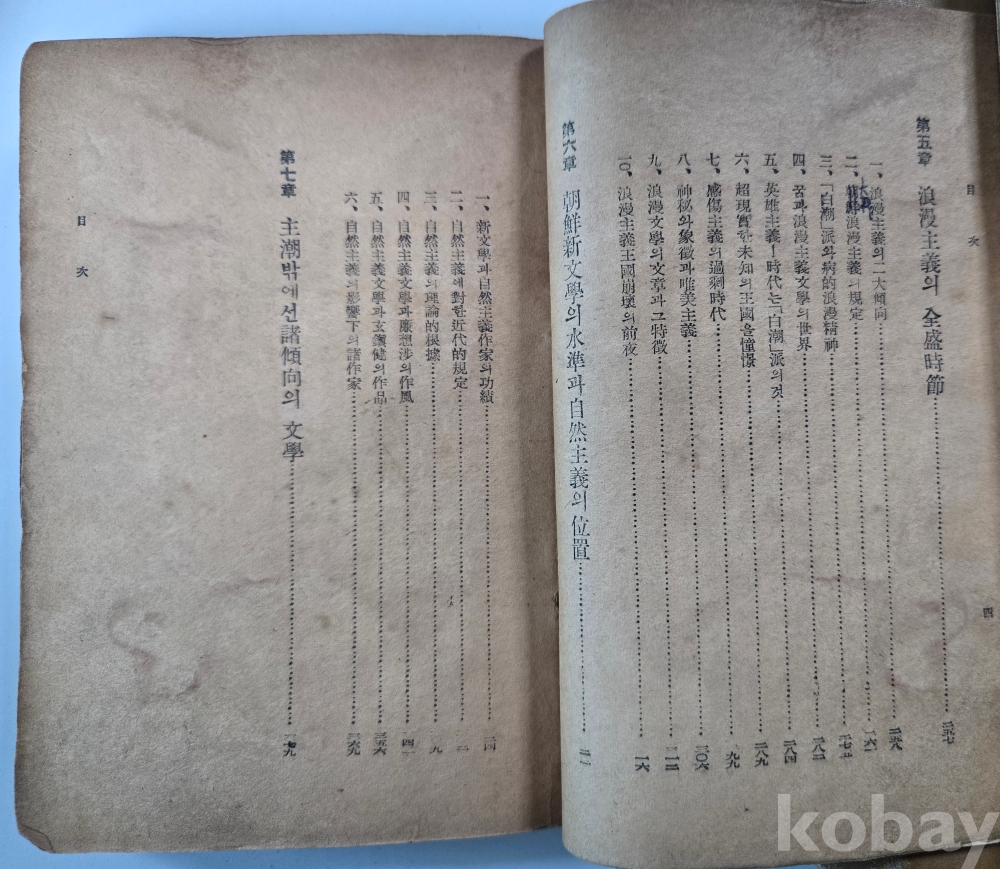 目次
四
第五章 浪漫主義의 全盛時節
一、浪漫主義의 二大傾向
二、浪漫主義의 規定
三、「白潮」派와 病的浪漫精神
四、꿈과 浪漫主義文學의 世界
五、英雄主義時代는 「白潮」派의 것
六、超現實한 未知의 王國을 憧憬
七、感傷主義의 過剩時代
八、神秘와 象徵과 唯美主義
九、浪漫文學의 文章과 그 特徵
一〇、浪漫主義王國崩壞의 前夜
第六章 朝鮮新文學의 水準과 自然主義의 位置
一、新文學과 自然主義作家의 功績
二、自然主義에 對한 近代的規定
三、自然主義의 理論的根據
四、自然主義文學과 廉想涉의 作風
五、自然主義文學과 玄鎭健의 作品
六、自然主義의 影響下의 諸作家
第七章 主潮밖에 선 諸傾向의 文學
目次
kobay